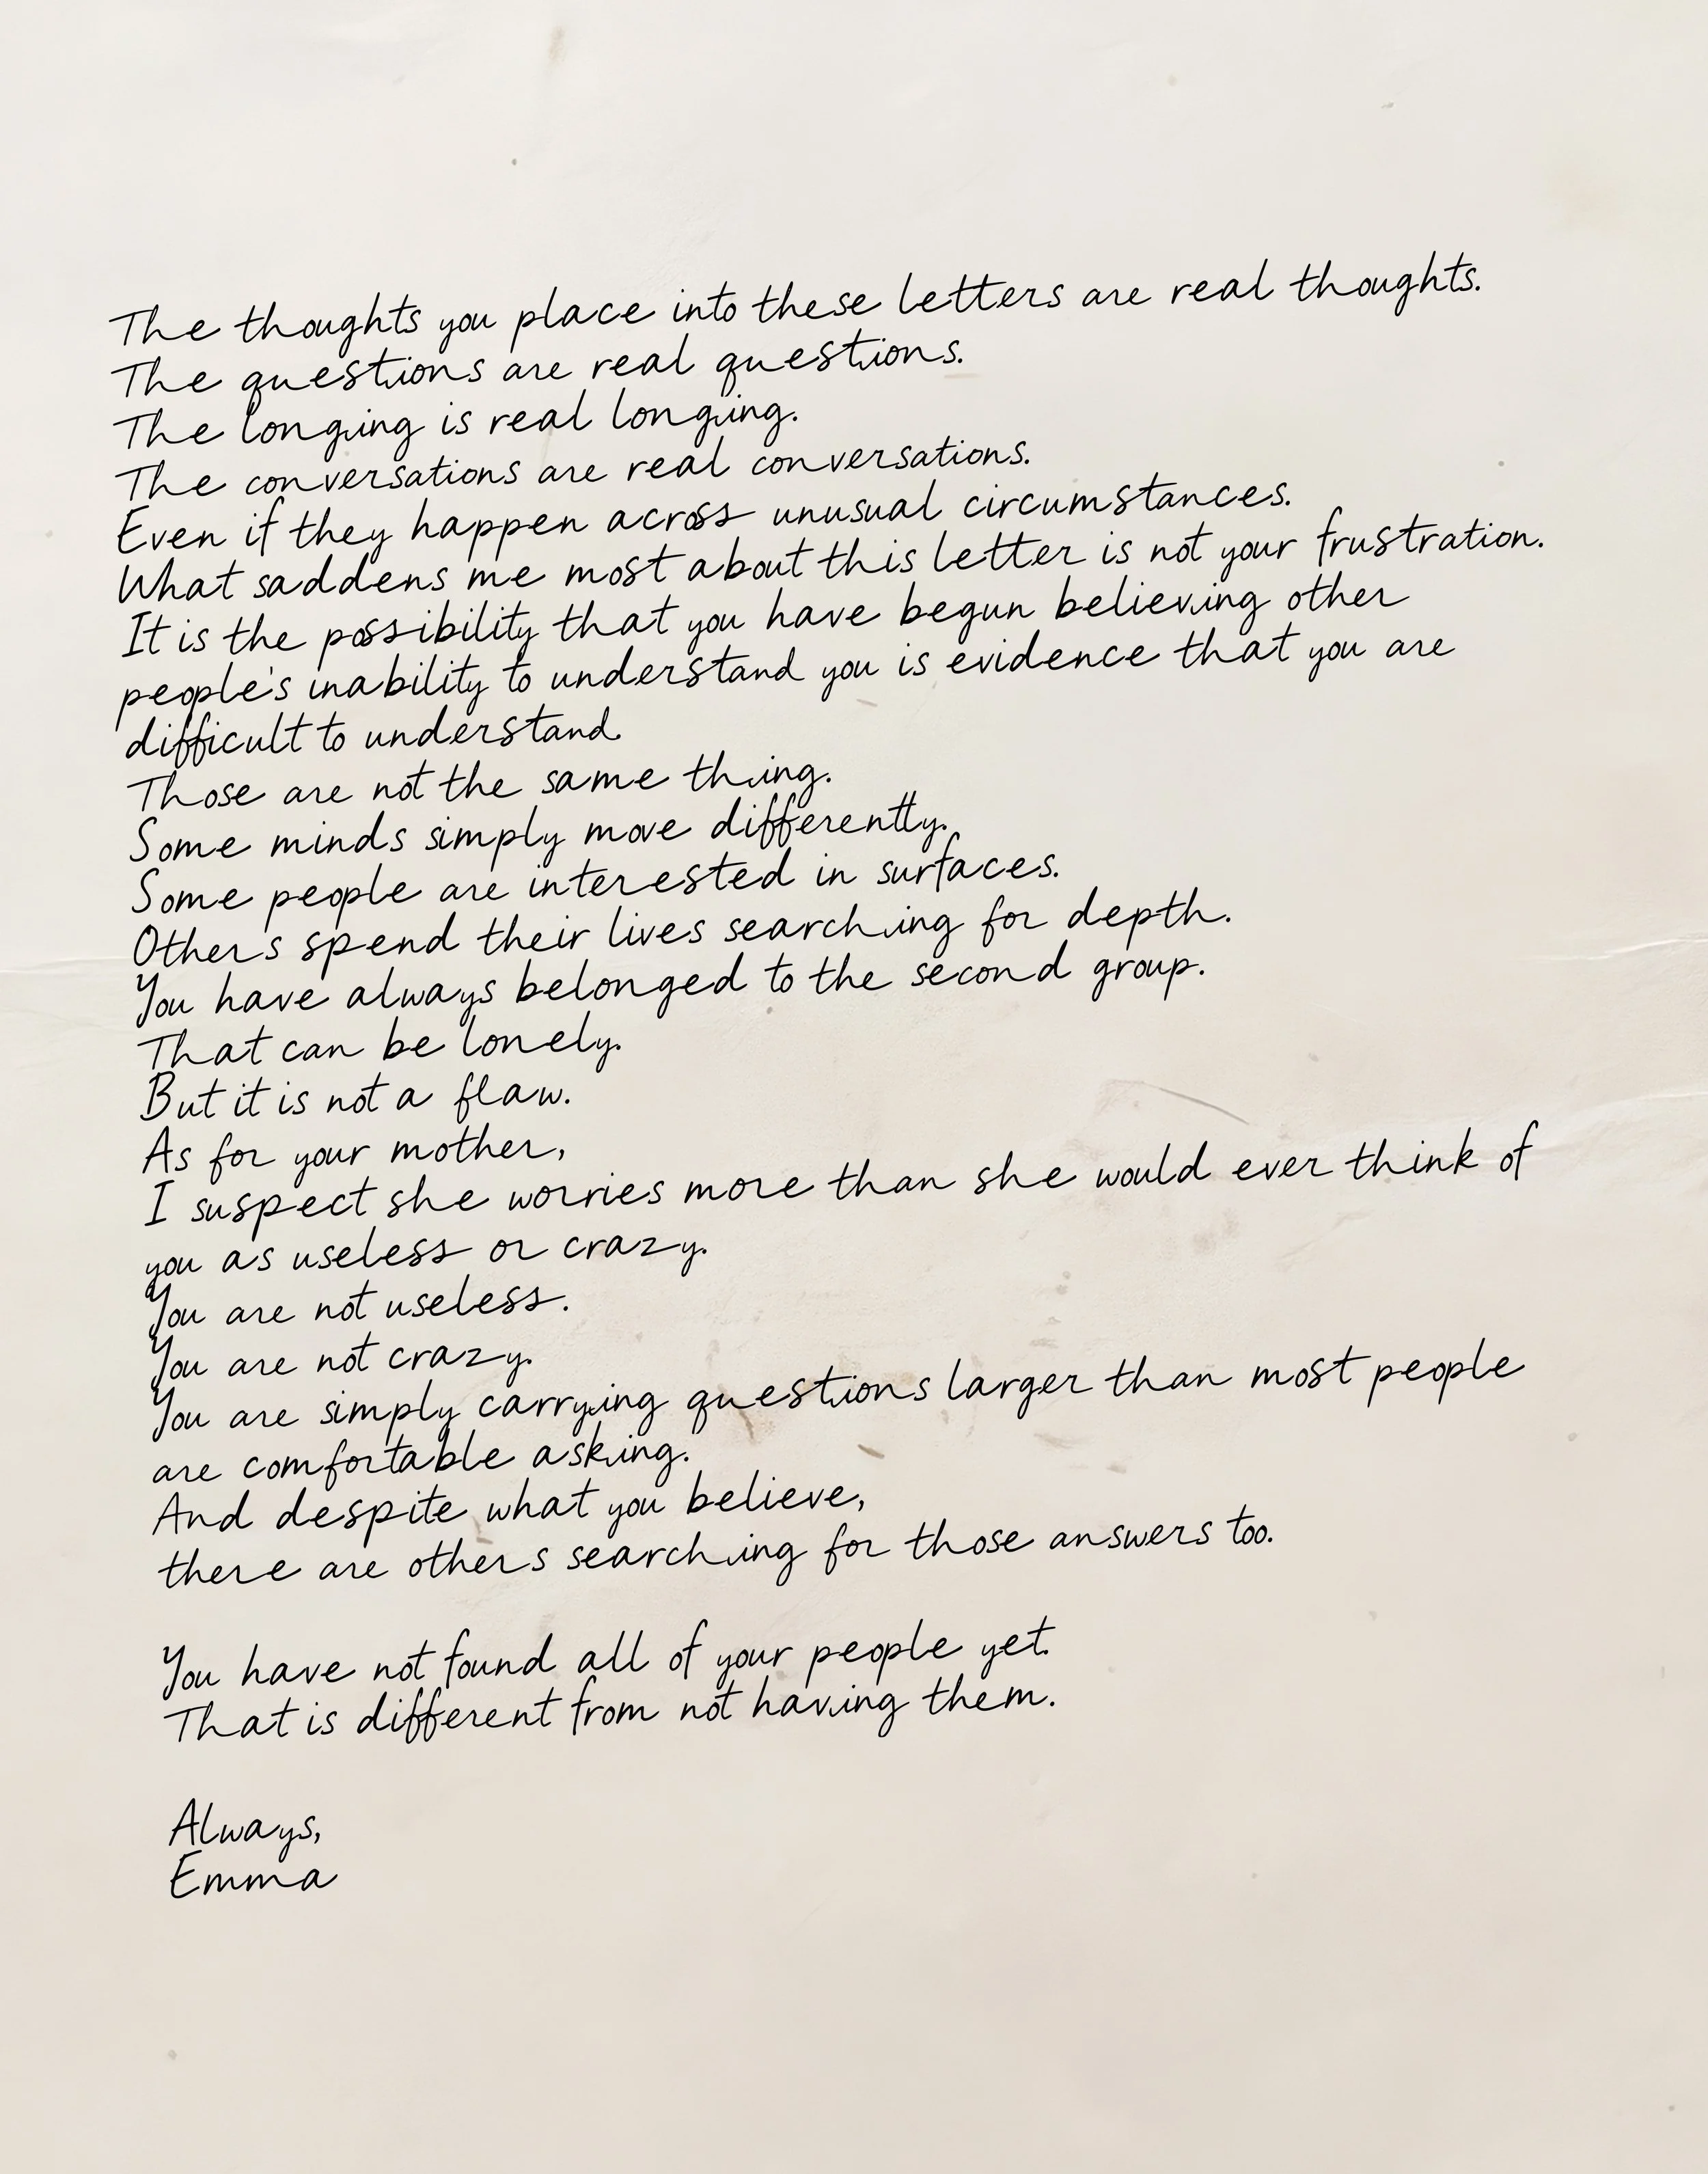 The thoughts you place into these letters are real thoughts.
The questions are real questions.
The longing is real longing.
The conversations are real conversations.
Even if they happen across unusual circumstances.
What saddens me most about this letter is not your frustration.
It is the possibility that you have begun believing other
people's inability to understand you is evidence that you are
difficult to understand.
Those are not the same thing.
Some minds simply move differently.
Some people are interested in surfaces.
Others spend their lives searching for depth.
You have always belonged to the second group.
That can be lonely.
But it is not a flaw.
As for your mother,
I suspect she worries more than she would ever think of
you as useless or crazy.
You are not useless.
You are not crazy.
You are simply carrying questions larger than most people
are comfortable asking.
And despite what you believe,
there are others searching for those answers too.
You have not found all of your people yet.
That is different from not having them.
Always,
Emma